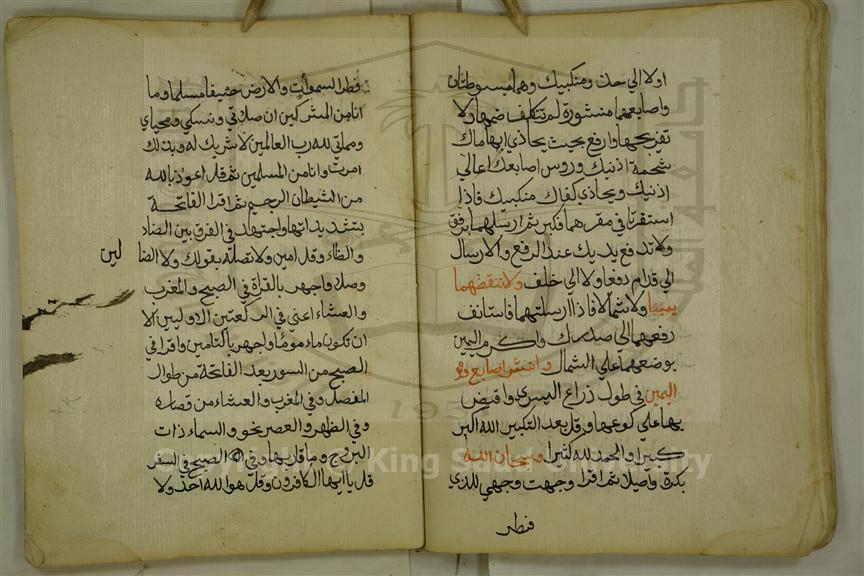 اولا الي حذ ومنكبيك وهما مبسوطتان
واصابعهما منشورة لم تتكلف ضمها ولا
تفريجها وارفع بحيث يحاذي ابهاماك
شحمة اذنيك وروس اصابعك اعالي
اذنيك ويحاذي كفاك منكبيك فاذا
استقرتا في مقرهما فكبر ثم ارسلهما برفق
ولا تدفع يديك عند الرفع والارسال
الي قدام دفعا ولا الي خلف ولا تنفضهما
يمينا ولا شمالا فاذا ارسلتهما فاستانف
رفعهما الي صدرك واكرم اليمين
بوضعهما علي الشمال وانشر اصابع
اليمين في طول ذراع اليسري واقبض
بها علي كوعها وقل بعد التكبير الله اكبر
كبيرا والحمد لله كثيرا وسبحان الله
بكرة واصيلا ثم اقرا وجهت وجهي للذي
فطر
فطر السموات والارض حنيفا مسلما وما
انا من المشركين ان صلاتي ونسكي ومحياي
ومماتي لله رب العالمين لا شريك له وبذلك
امرت وانا من المسلمين ثم قل اعوذ بالله
من الشيطان الرجيم ثم اقرا الفاتحة
بتشديداتها واجتهد في الفرق بين الضاد
والظاء وقل امين ولا تصله بقولك ولا الضا لين
وصلا واجهر بالقراة في الصبح والمغرب
والعشاء اعني في الركعتين الاوليين الا
ان تكون ماموما واجهر بالتامين واقرا في
الصبح من السور بعد الفاتحة من طوال
المفصل وفي المغرب والعشاء من قصاره
وفي الظهر والعصر نحو والسماء ذات
البروج وما قاربها وفي الصبح في السفر
قل يا ايها الكافرون وقل هو الله احد ولا
1957
Copyright © King Saud University